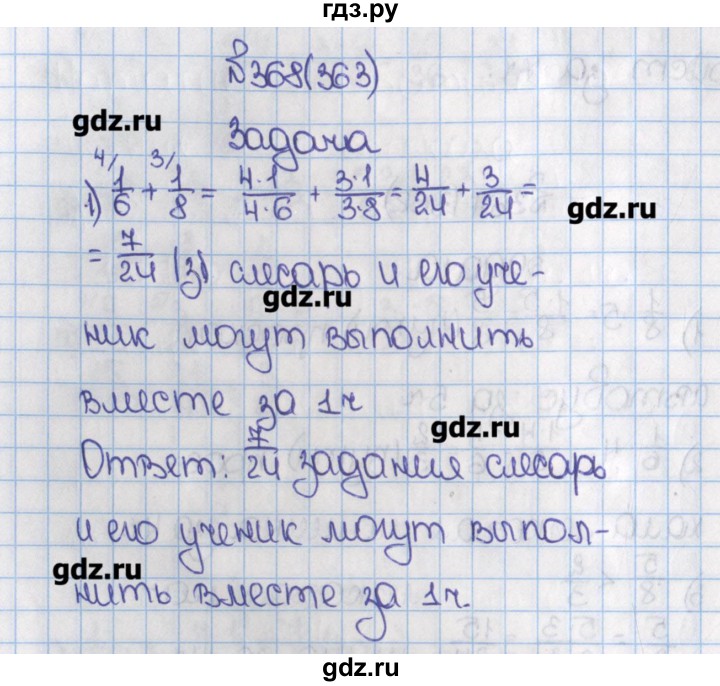 гдз.ру
№368(363)
gdz.ru
Задача
1) 4/ 1/6 + 3/ 1/8 = 4·1/4·6 + 3·1/3·8 = 4/24 + 3/24 =
gdz.ru
= 7/24 (з) слесарь и его уче-
gdz.ru
ник могут выполнить
вместе за 1ч
gdz.ru
Ответ: 7/24 задания слесарь
и его ученик могут выпол-
gdz.ru
нить вместе за 1ч.
gdz.ru